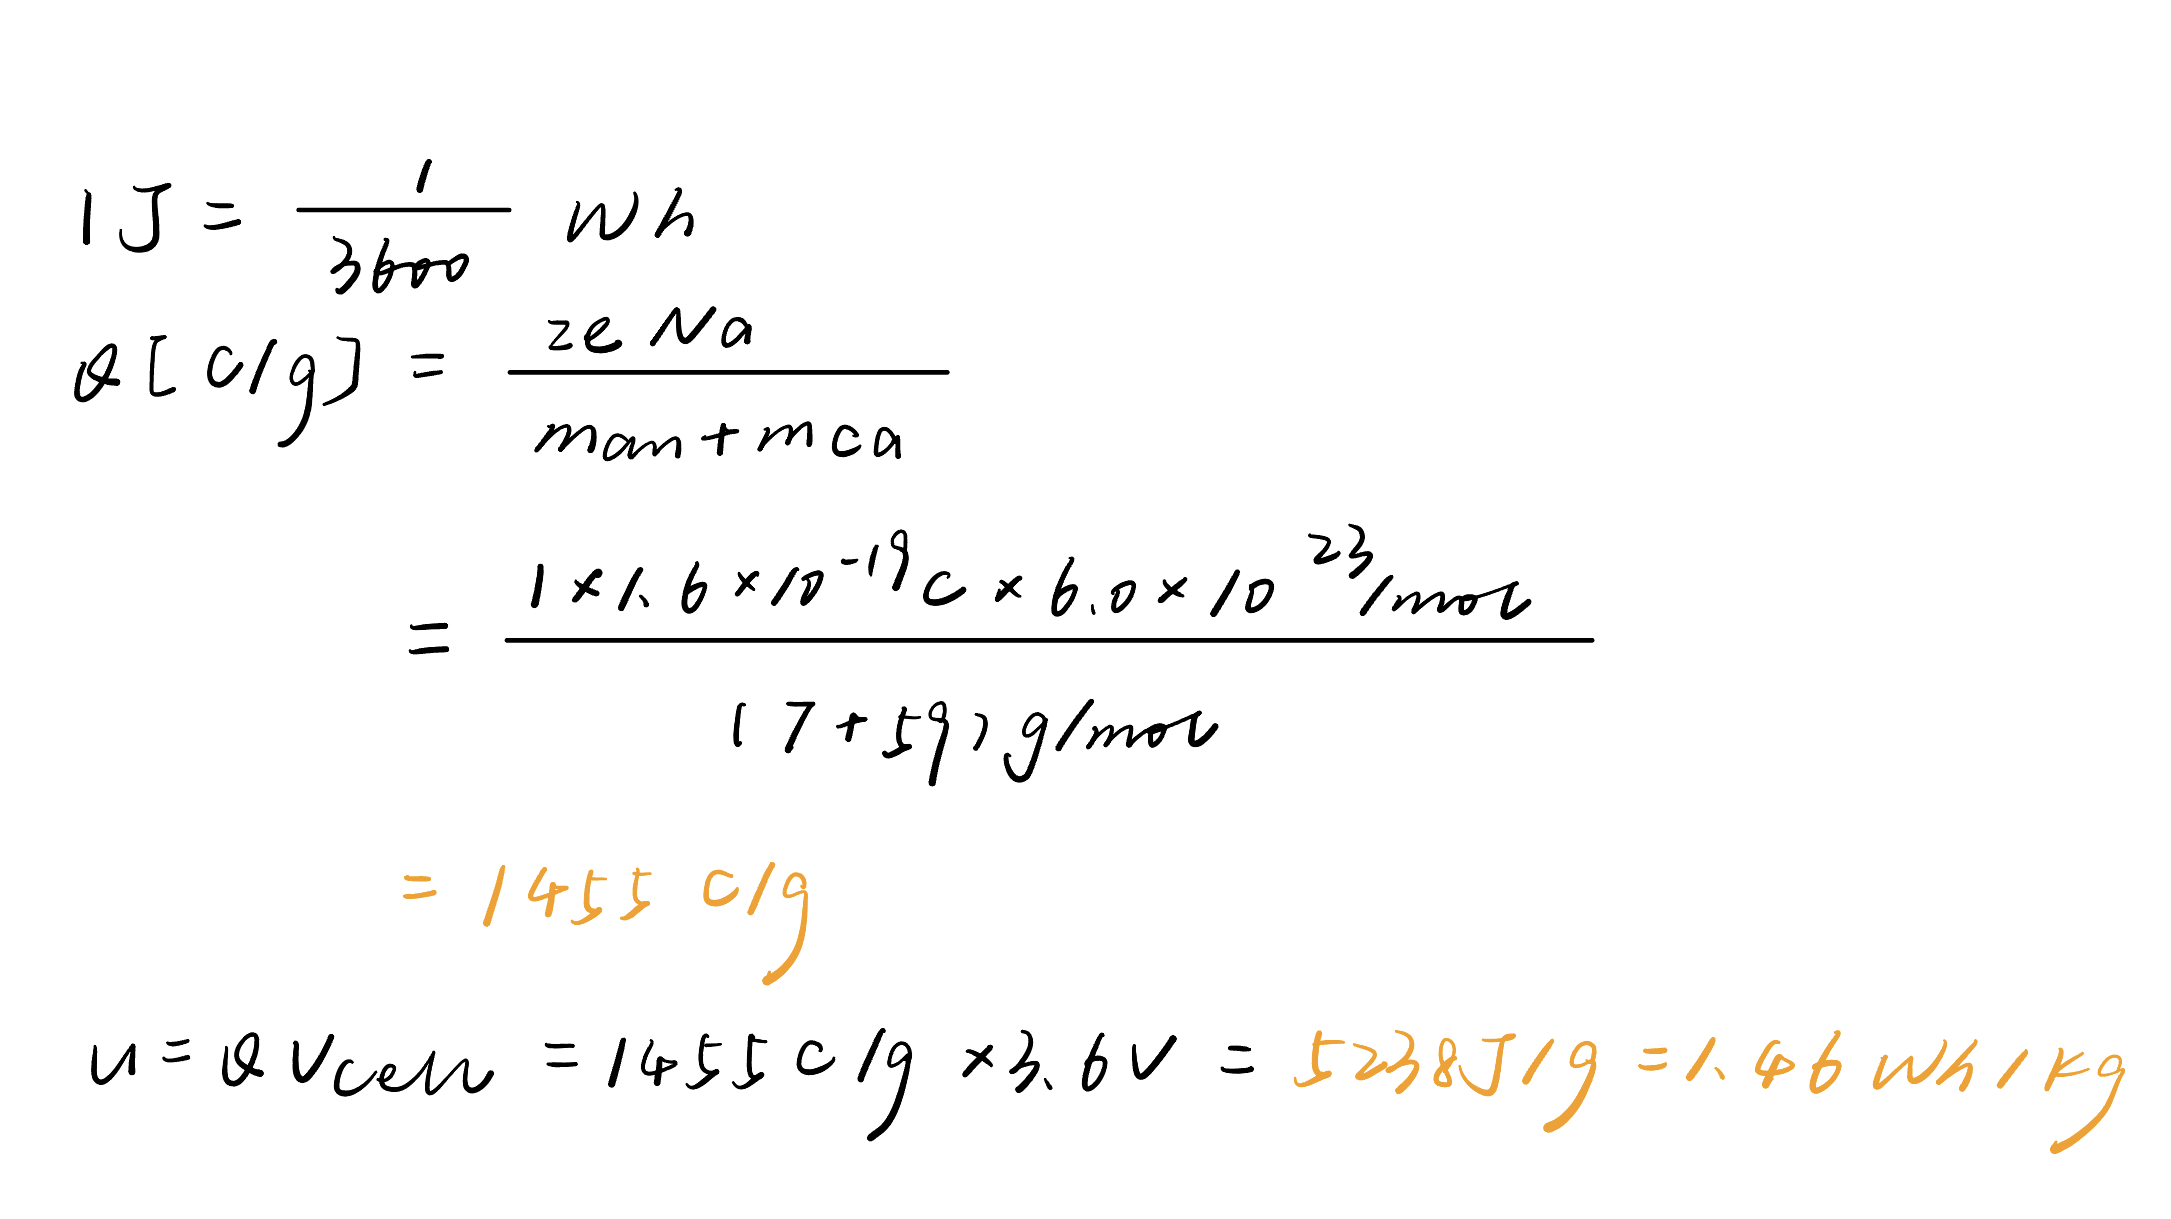 1J = 1/3600 Wh
Q[C/g] = zeNa/(man+mca)
= 1×1.6×10⁻¹⁹C×6.0×10²³/mol / (7+59)g/mol
= 1455 C/g
u = QVcell = 1455C/g×3.6V = 5238J/g = 1.46Wh/kg